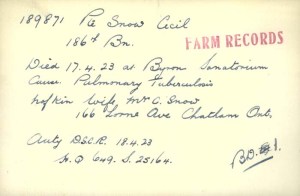 189871 Pte Snow Cecil
186th Bn. FARM RECORDS
Died 17.4.23 at Byron Sanatorium
Cause. Pulmonary Tuberculosis
Wife, Mrs C. Snow
166 Lorne Ave Chatham Ont.
Auty D.S.C.R. 18.4.23
H.Q 649. S. 25164.